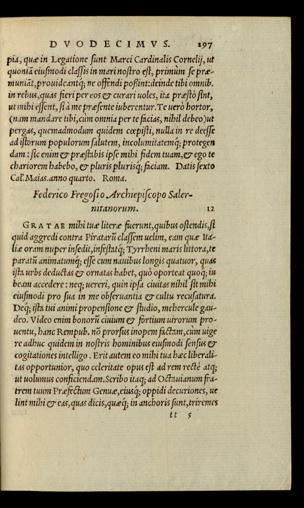 DVODECIMVS. 297
pia, quæ in Legatione sunt Marci Cardinalis Cornelij, ut
quoniā eiusmodi classis in mari nostro est, primùm se præ-
muniāt, prouideantq; ne offendi possint: deinde tibi omnib.
in rebus, quas fieri per eos & curari uoles, ita præstò sint,
ut mihi essent, si à me præsente iuberentur. Te uerò hortor,
(nam mandare tibi, cùm omnia per te facias, nihil debeo) ut
pergas, quemadmodum quidem cœpisti, nulla in re deesse
ad istorum populorum salutem, incolumitatemq; protegen
dam: sic enim & præstabis ipse mihi fidem tuam, & ego te
chariorem habebo, & pluris plurisq; faciam. Datis sexto
Cal. Maias. anno quarto. Roma.
Federico Fregosio Archiepiscopo Saler-
nitanorum. 12
GRATAE mihi tuæ literæ fuerunt, quibus ostendis, si
quid aggredi contra Piratarū classem uelim, eam quæ Ita-
liæ oram nuper insedit, infestatq; Tyrrheni maris littora, te
paratū animatumq; esse cum nauibus longis quatuor, quas
ista urbs deductas & ornatas habet, quò oporteat quoq; iu
beam accedere: neq; uereri, quin ista ciuitas nihil sit mihi
eiusmodi pro sua in me obseruantia & cultu recusatura.
Deq; ista tui animi propensione & studio, mehercule gau-
deo. Video enim bonorū ciuium & fortium uirorum pro
uentu, hanc Rempub. nō prorsus inopem factam, cùm uige
re adhuc quidem in nostris hominibus eiusmodi sensus &
cogitationes intelligo. Erit autem eo mihi tua hæc liberali-
tas opportunior, quo celeritate opus est ad rem rectè atq;
ut uolumus conficiendam. Scribo itaq; ad Octauianum fra-
trem tuum Præfectum Genuæ, eiusq; oppidi decuriones, ue
lint mihi & eas, quas dicis, quæq; in anchoris sunt, triremes
tt 5